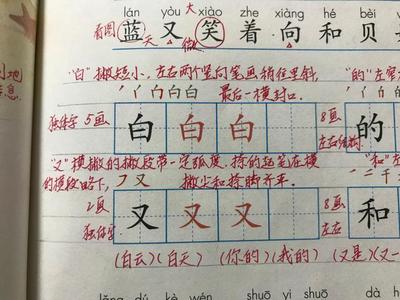 lán yòu xiào zhe xiàng hé bèi
大
看图 蓝 又 笑 着 向 和 贝
天 做
"白"撇短小、左右两个竖向笔画稍往里斜,
"的"左窄
白白 最后一横封口.
独体字 5画 白 白 白 8画 的
左右结构
"又"横撇的撇皮带一定弧度、捺的起笔在横 "和"左
的横段略下, 撇尖和捺脚齐平.
2画 又 又 又 8画 和
独体字 左右
(白云)(白天) (你的)(我的) (又是)(又一
dú kè wén shuō yi shuō dà